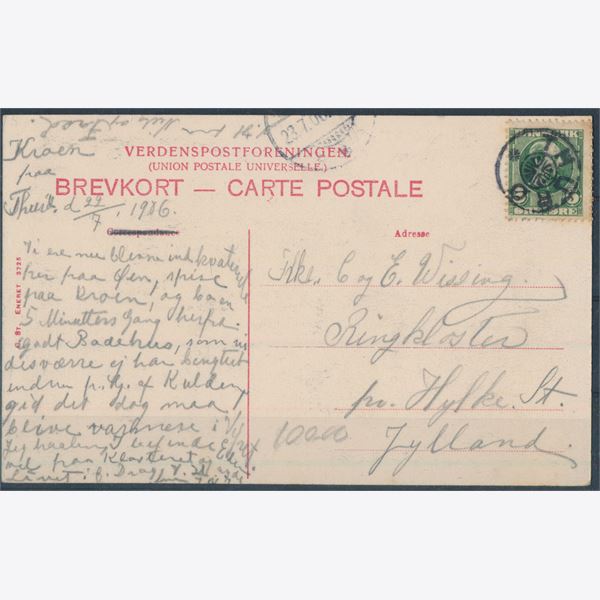 Kroen
paa
Thurö d 22/7 1906.
23.7.06
VERDENSPOSTFORENINGEN.
(UNION POSTALE UNIVERSELLE.)
BREVKORT — CARTE POSTALE
Correspondance
Adresse
ENERET 3725
Vi ere nu blevne indkvarte
rer paa Øen, spise
paa Kroen, og bo en
5 Minutters Gang herfra.
godt Badehus, som vi
desværre ej har benyttet
endnu p. Gr. af Kulden,
gid det dog maa
blive varmere i
Jeg haaber I befinde Eder
vel paa Klosteret
Frkr. C og E. Wissing.
Ringkloster
pr. Hylke. St.
Jylland.
10000
DANMARK
5 ØRE